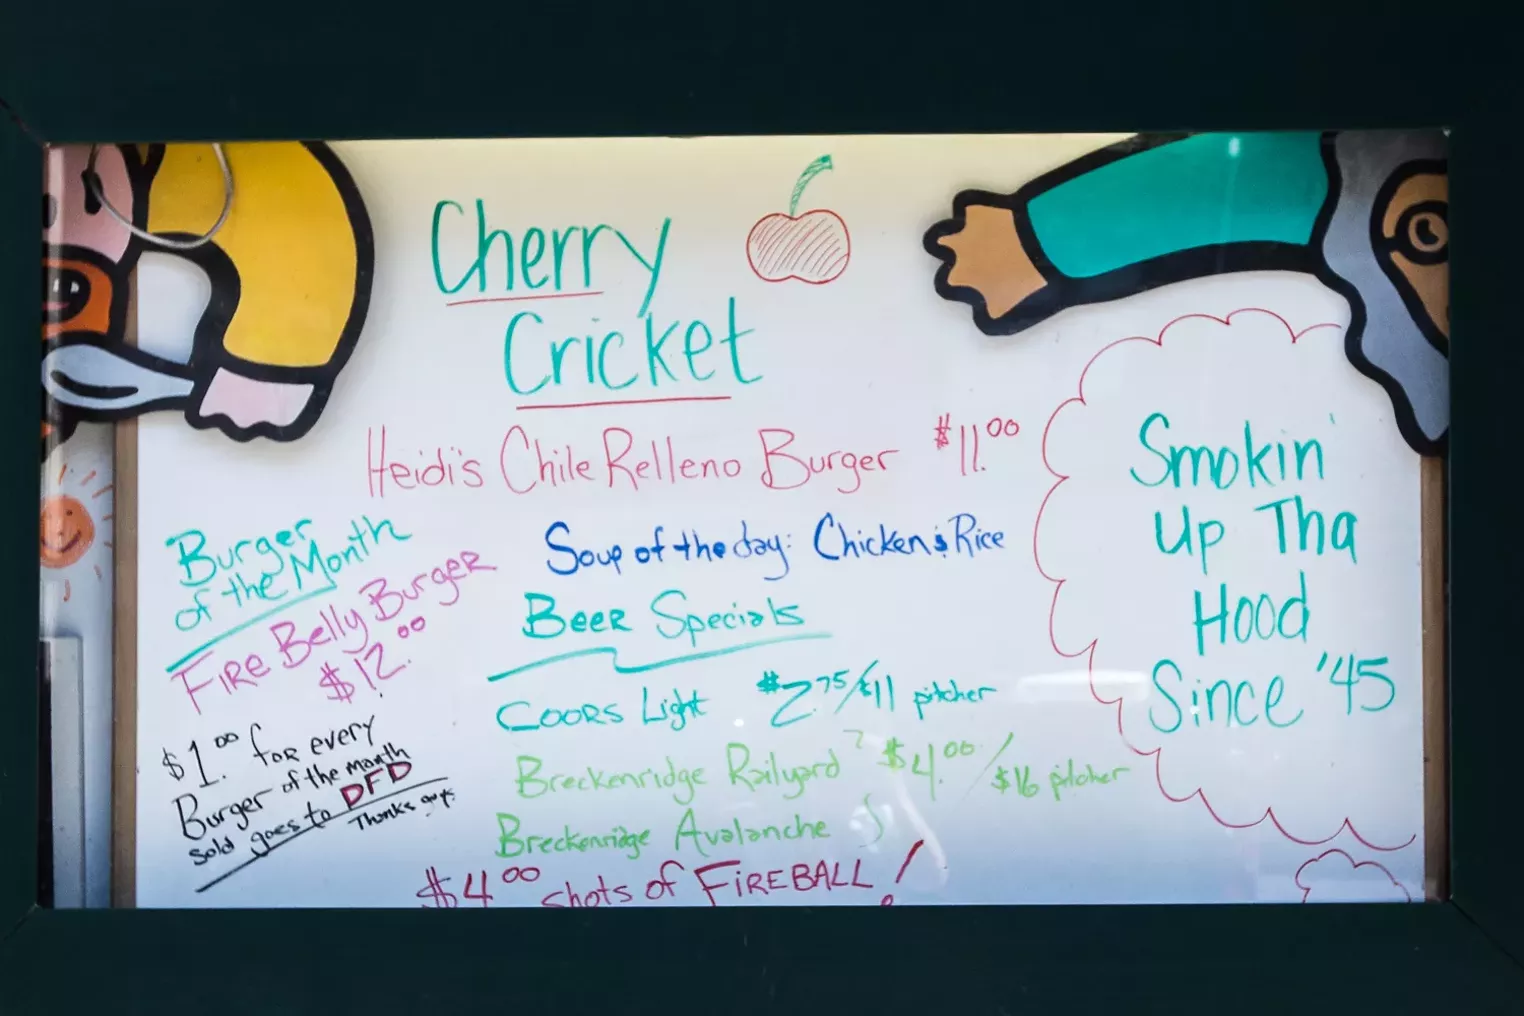 Cherry
Cricket
Heidi's Chile Relleno Burger $11.00
Soup of the day: Chicken & Rice
Burger
of the Month
Fire Belly Burger
$12.00
$1.00 for every
Burger of the month
sold goes to DFD
Beer Specials
Coors Light $2.75/$11 pitcher
Breckenridge Railyard $4.00/$16 pitcher
Breckenridge Avalanche
$4.00 shots of FIREBALL!
Smokin'
Up Tha
Hood
Since '45